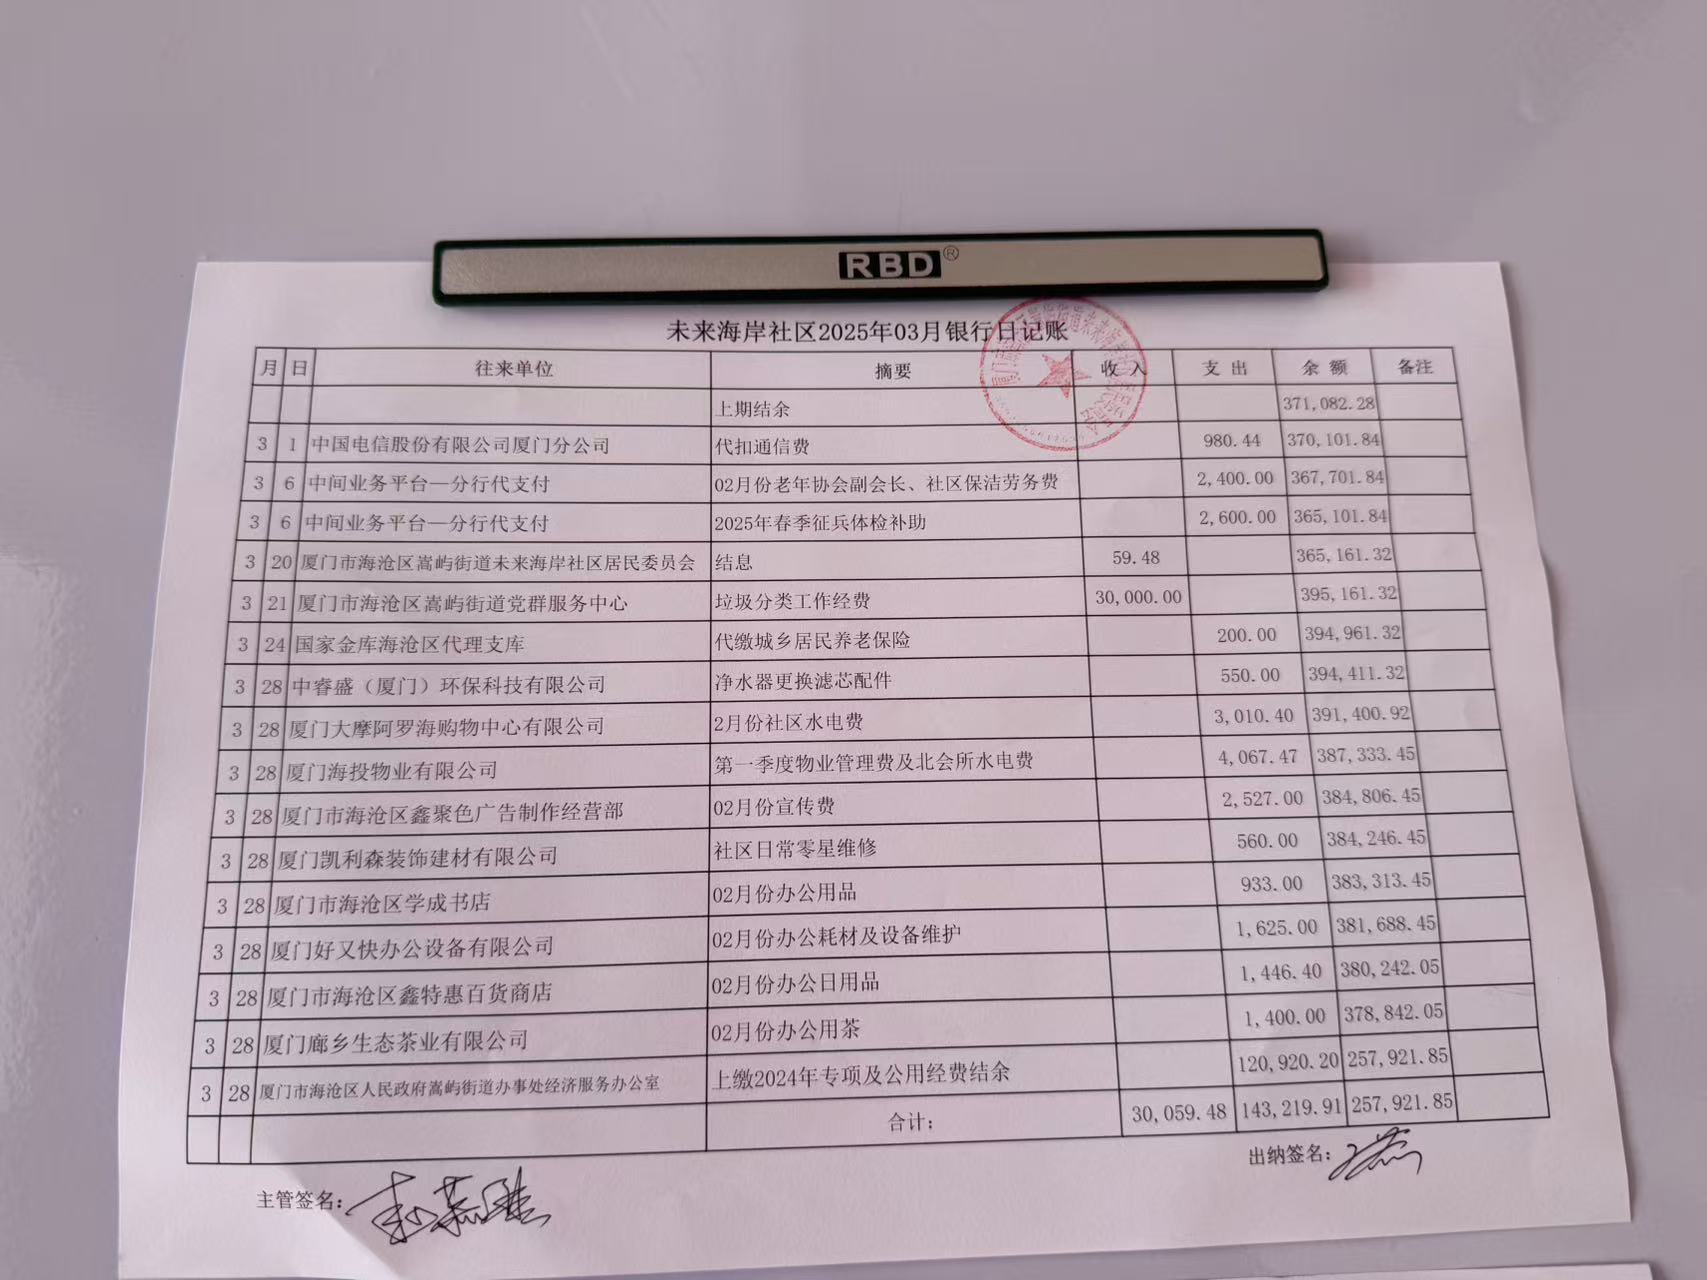 RBD®
未来海岸社区2025年03月银行日记账
月 日 往来单位 摘要 收入 支出 余额 备注
上期结余 371,082.28
3 1 中国电信股份有限公司厦门分公司 代扣通信费 980.44 370,101.84
3 6 中间业务平台—分行代支付 02月份老年协会副会长、社区保洁劳务费 2,400.00 367,701.84
3 6 中间业务平台—分行代支付 2025年春季征兵体检补助 2,600.00 365,101.84
3 20 厦门市海沧区嵩屿街道未来海岸社区居民委员会 结息 59.48 365,161.32
3 21 厦门市海沧区嵩屿街道党群服务中心 垃圾分类工作经费 30,000.00 395,161.32
3 24 国家金库海沧区代理支库 代缴城乡居民养老保险 200.00 394,961.32
3 28 中睿盛（厦门）环保科技有限公司 净水器更换滤芯配件 550.00 394,411.32
3 28 厦门大摩阿罗海购物中心有限公司 2月份社区水电费 3,010.40 391,400.92
3 28 厦门海投物业有限公司 第一季度物业管理费及北会所水电费 4,067.47 387,333.45
3 28 厦门市海沧区鑫聚色广告制作经营部 02月份宣传费 2,527.00 384,806.45
3 28 厦门凯利森装饰建材有限公司 社区日常零星维修 560.00 384,246.45
3 28 厦门市海沧区学成书店 02月份办公用品 933.00 383,313.45
3 28 厦门好又快办公设备有限公司 02月份办公耗材及设备维护 1,625.00 381,688.45
3 28 厦门市海沧区鑫特惠百货商店 02月份办公日用品 1,446.40 380,242.05
3 28 厦门廊乡生态茶业有限公司 02月份办公用茶 1,400.00 378,842.05
3 28 厦门市海沧区人民政府嵩屿街道办事处经济服务办公室 上缴2024年专项及公用经费结余 120,920.20 257,921.85
合计： 30,059.48 143,219.91 257,921.85
主管签名： 出纳签名：